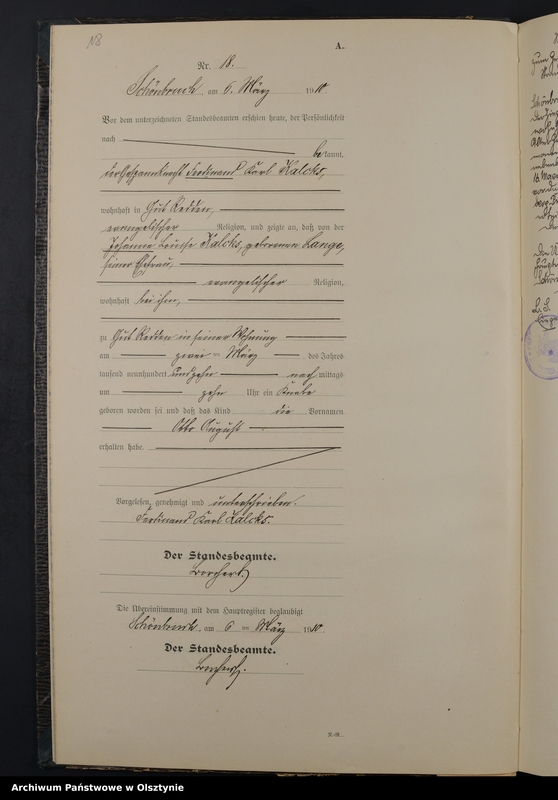 N8
A.
Nr. 18.
Schönbruch, am 6. März 1910.
Vor dem unterzeichneten Standesbeamten erschien heute, der Persönlichkeit
nach
bekannt,
der Gespannknecht Ferdinand Karl Kalcks,
wohnhaft in Gut Redden,
evangelischer Religion, und zeigte an, daß von der
Johanne Kalcks, geborenen Lange,
seiner Ehefrau,
evangelischer Religion,
wohnhaft bei ihm,
zu Gut Redden in seiner Wohnung
am zwei ten März des Jahres
tausend neunhundert und zehn nach mittags
um zehn Uhr ein Knabe
geboren worden sei und daß das Kind die Vornamen
Otto August
erhalten habe.
Vorgelesen, genehmigt und unterschrieben.
Ferdinand Karl Kalcks.
Der Standesbeamte.
Borchert.
Die Übereinstimmung mit dem Hauptregister beglaubigt
Schönbruch, am 6 ten März 1910.
Der Standesbeamte.
Borchert.
Archiwum Państwowe w Olsztynie